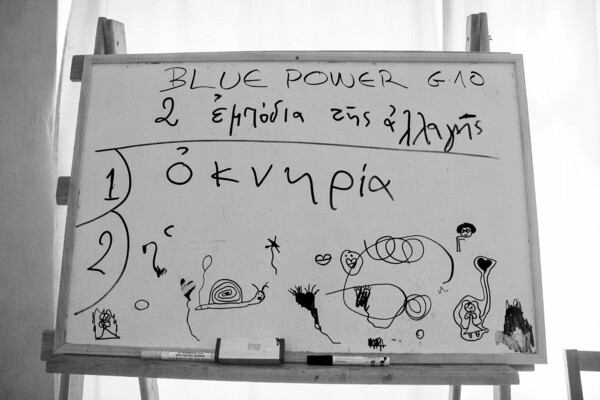 BLUE POWER G.10
2 ἐμπόδια τῆς ἀλλαγῆς
1) ὀκνηρία
2) ἡ